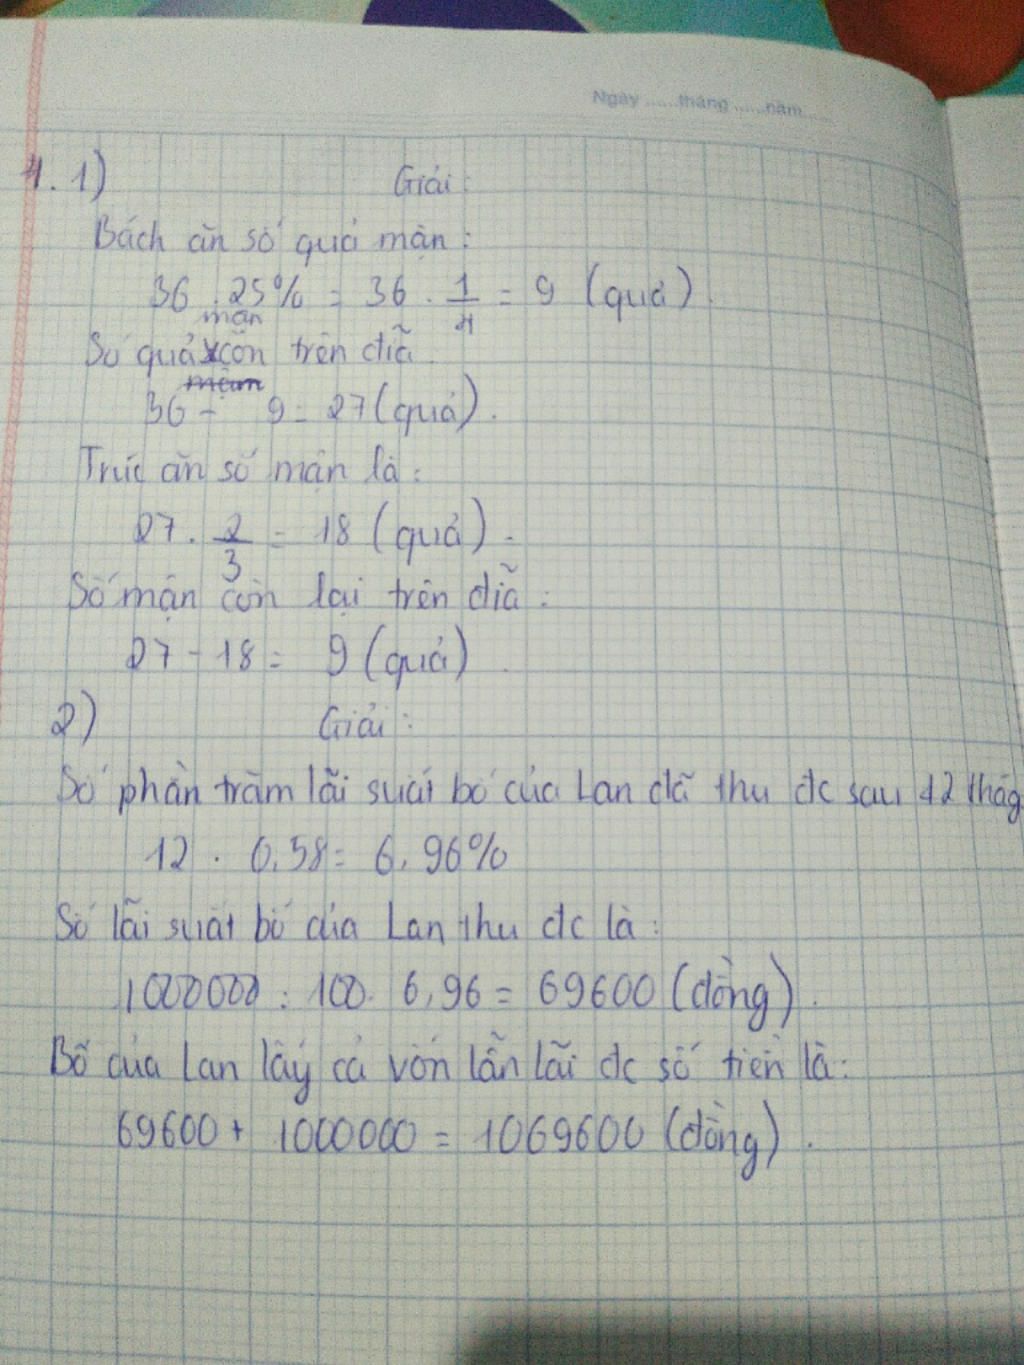 Ngày ......tháng ......năm......
4.1) Giải:
Bách ăn số quả mận:
36 . 25% = 36 . 1/4 = 9 (quả).
mận
Số quả còn trên đĩa.
36 - 9 = 27 (quả).
Trúc ăn số mận là:
27 . 2/3 = 18 (quả).
Số mận còn lại trên đĩa:
27 - 18 = 9 (quả).
2) Giải:
Số phần trăm lãi suất bố của Lan đã thu đc sau 12 thág
12 . 0,58 = 6,96%
Số lãi suất bố của Lan thu đc là:
1000000 : 100 . 6,96 = 69600 (đồng).
Bố của Lan lấy cả vốn lẫn lãi đc số tiền là:
69600 + 1000000 = 1069600 (đồng).